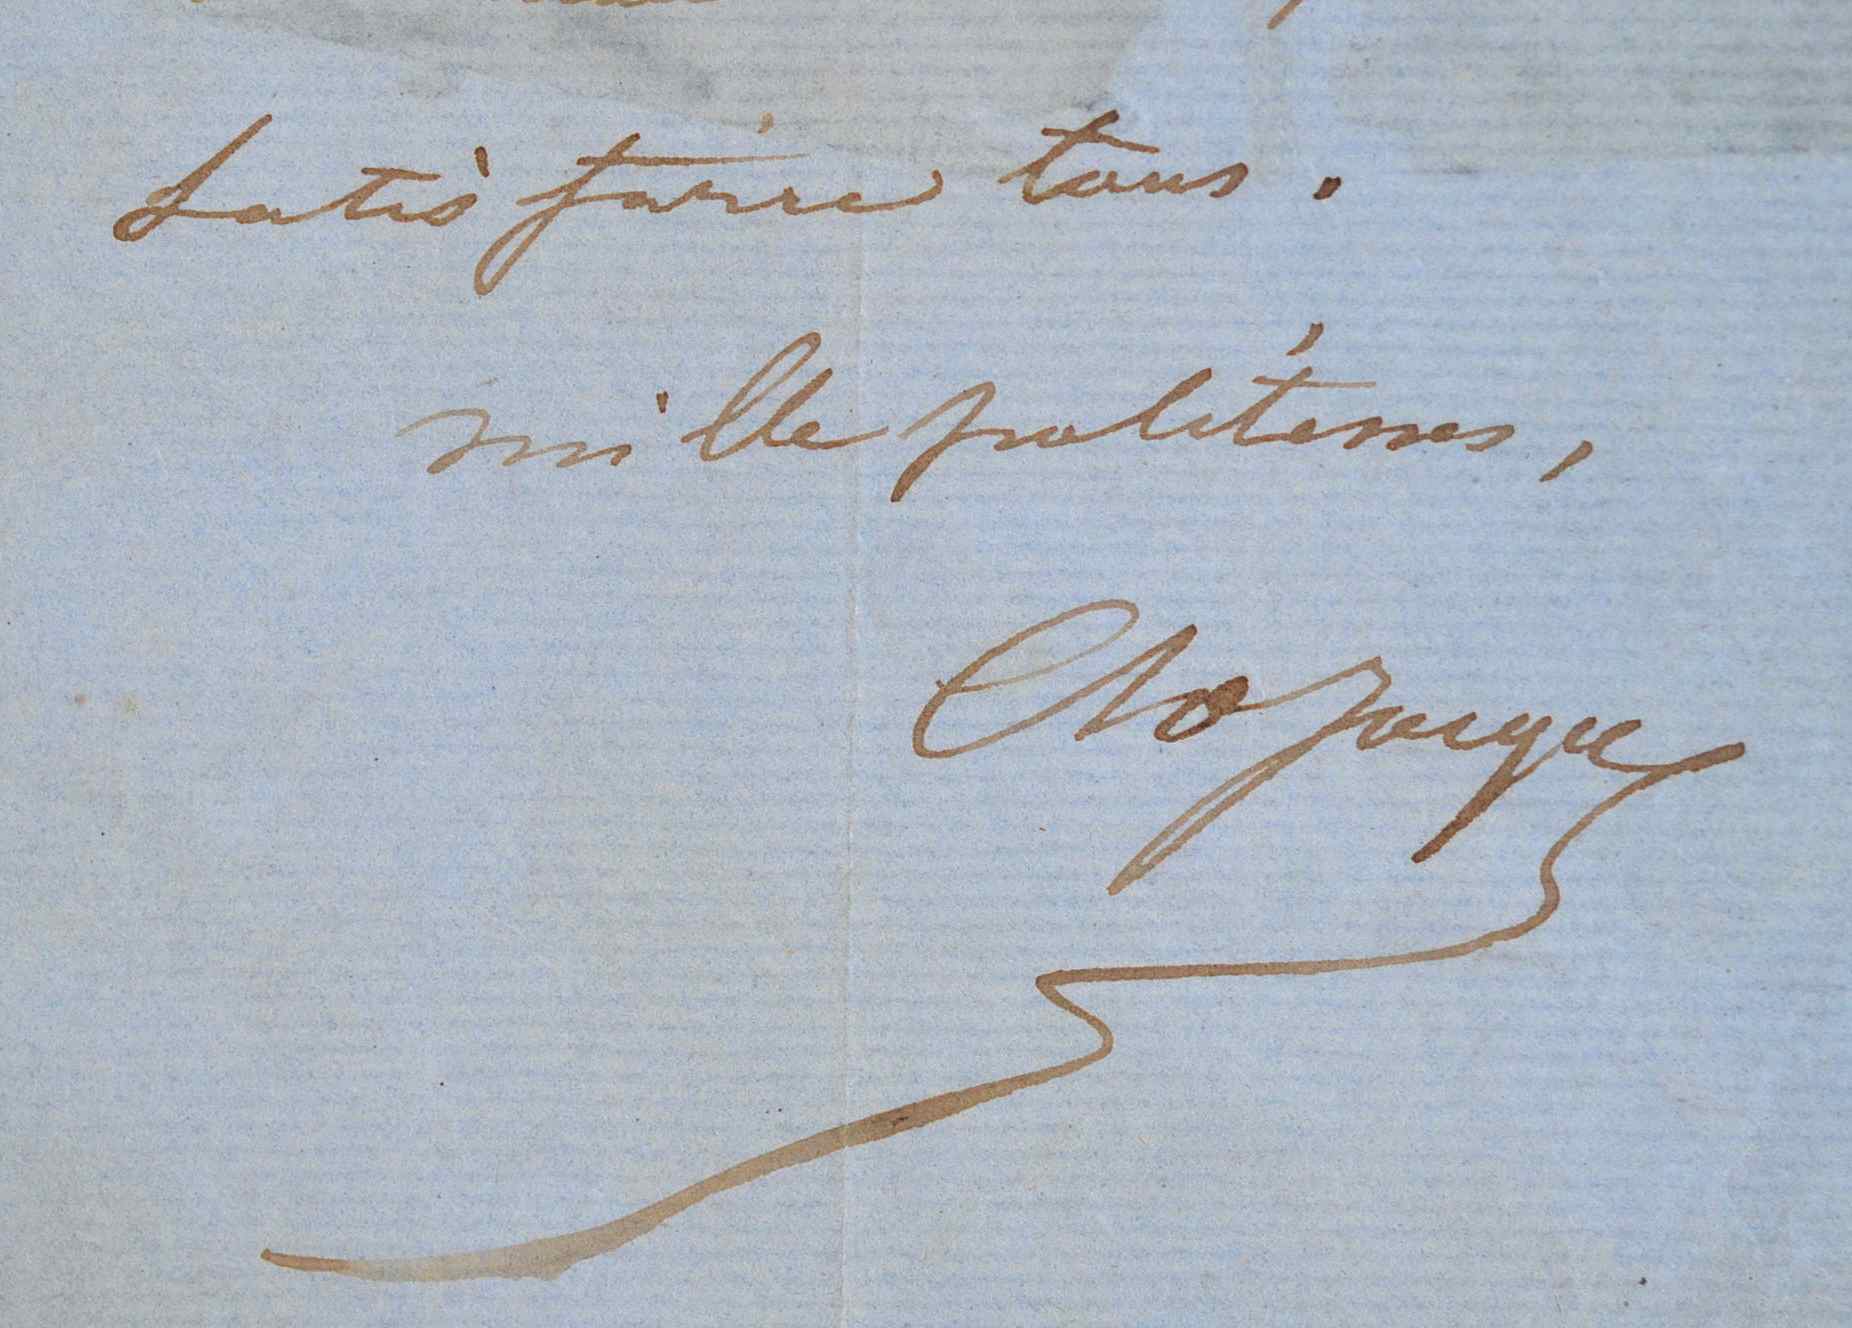 Satisfaire tous.
mille politesses,
Ch Jacque